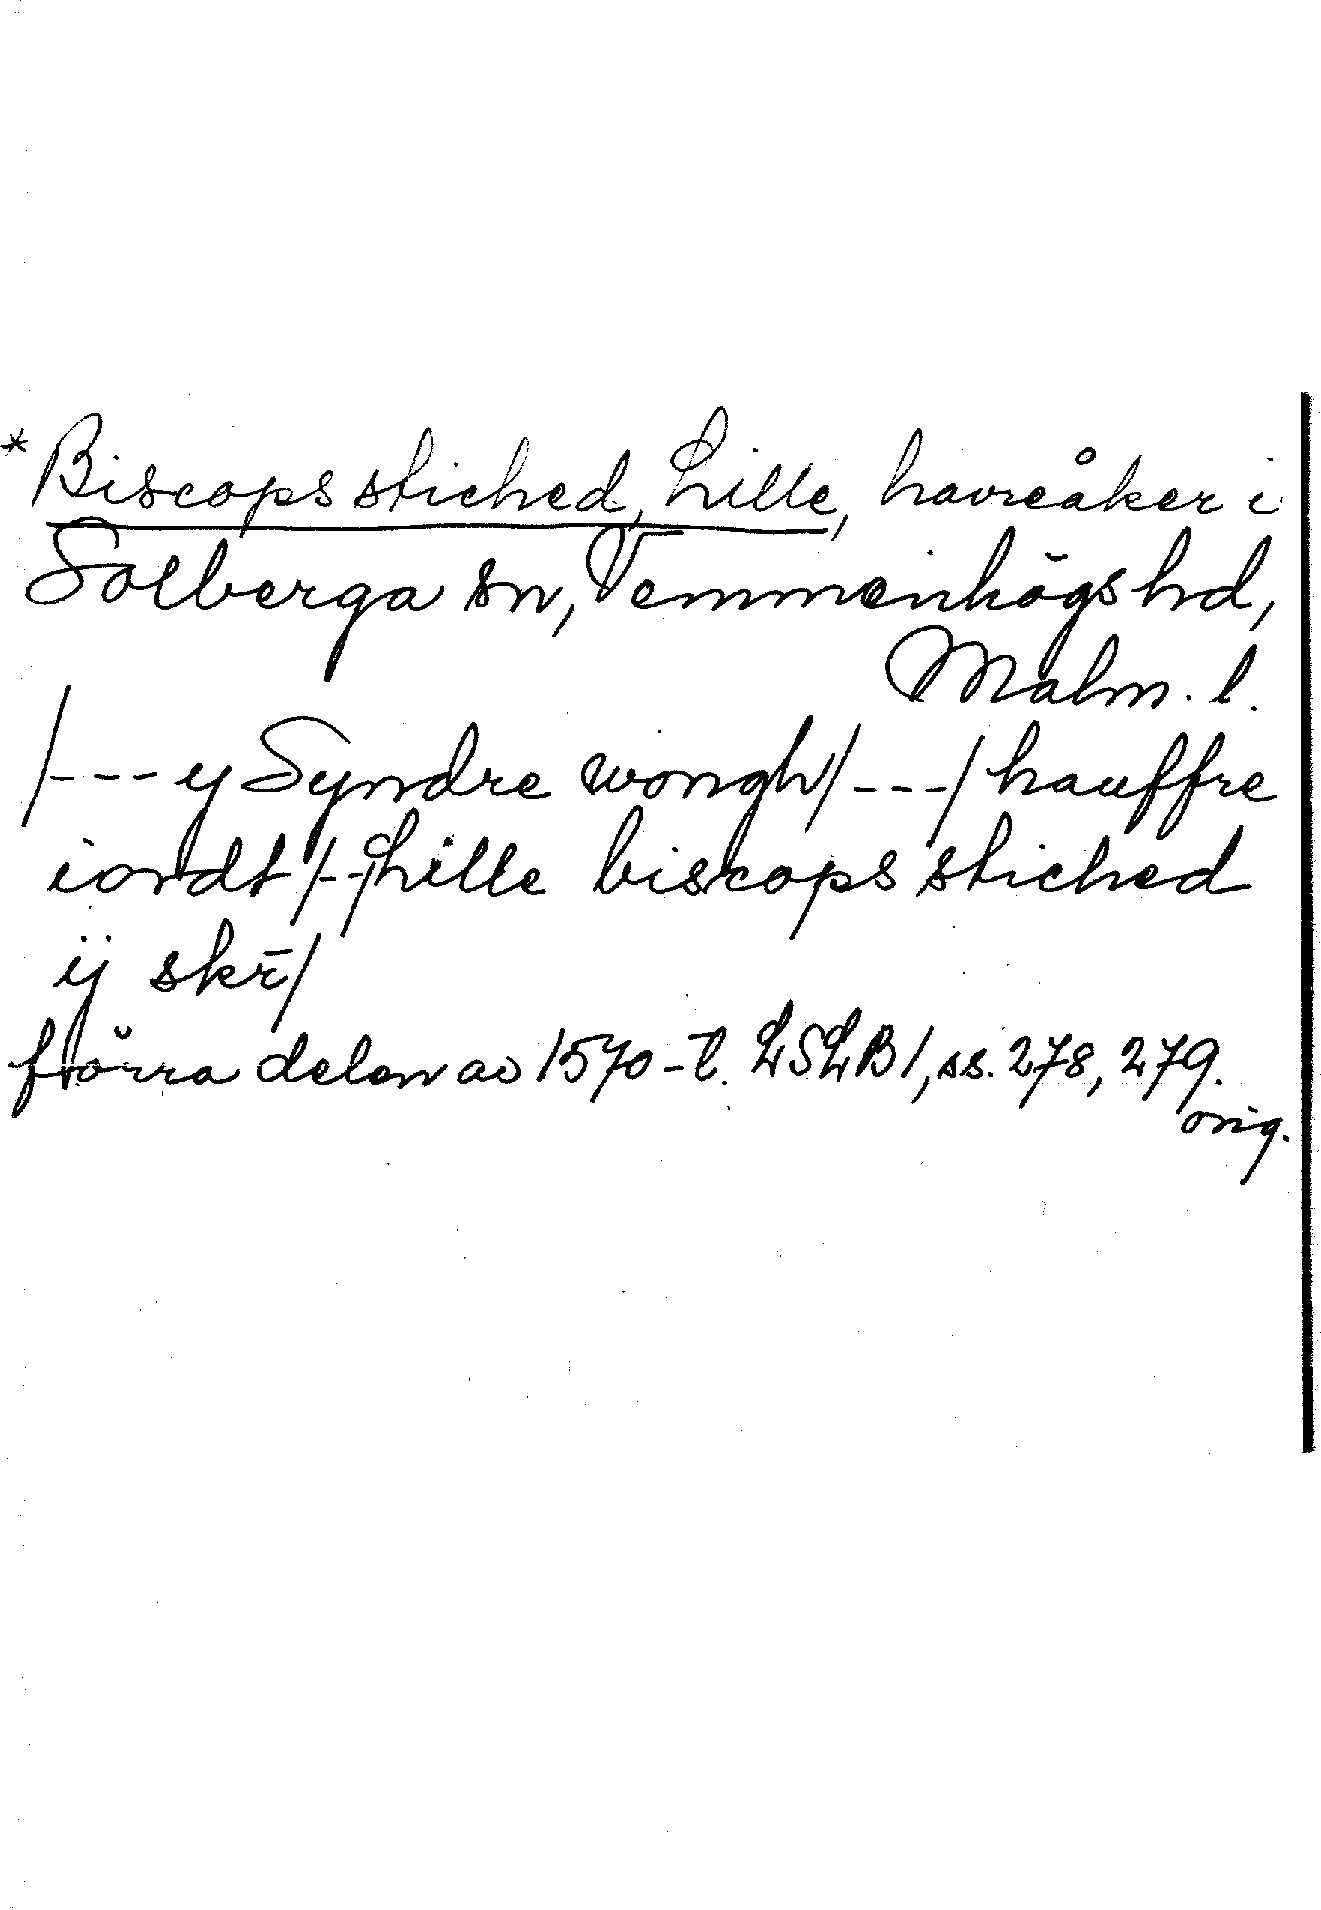 * Biscops stiched, Lille, havreåker i
Solberga sn, Vemmenhögs hd,
Malm. l.
/---y Syndre wongh/---/hauffre
iordt/--/Lille biscops stiched
ij skr̄/
förra delen av 1570-t. LSLB1, ss. 278, 279.
orig.